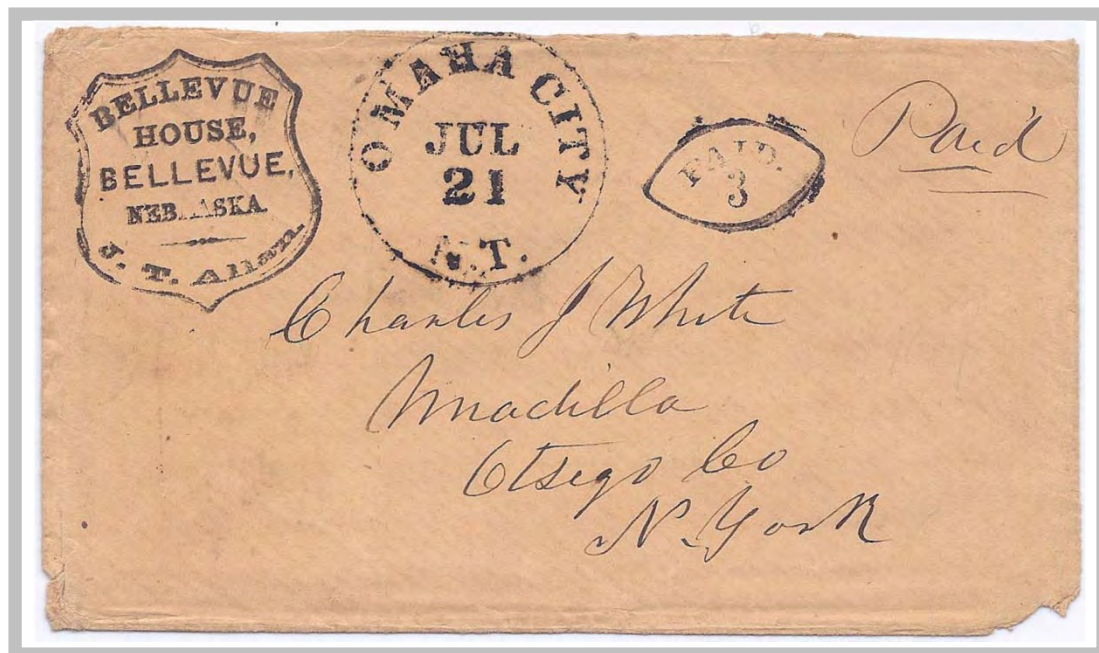 BELLEVUE
HOUSE,
BELLEVUE,
NEB..ASKA
J. T. Allan.
OMAHA CITY
JUL
21
N.T.
PAID.
3
Paid
Charles J White
Unadilla
Otsego Co
N. York